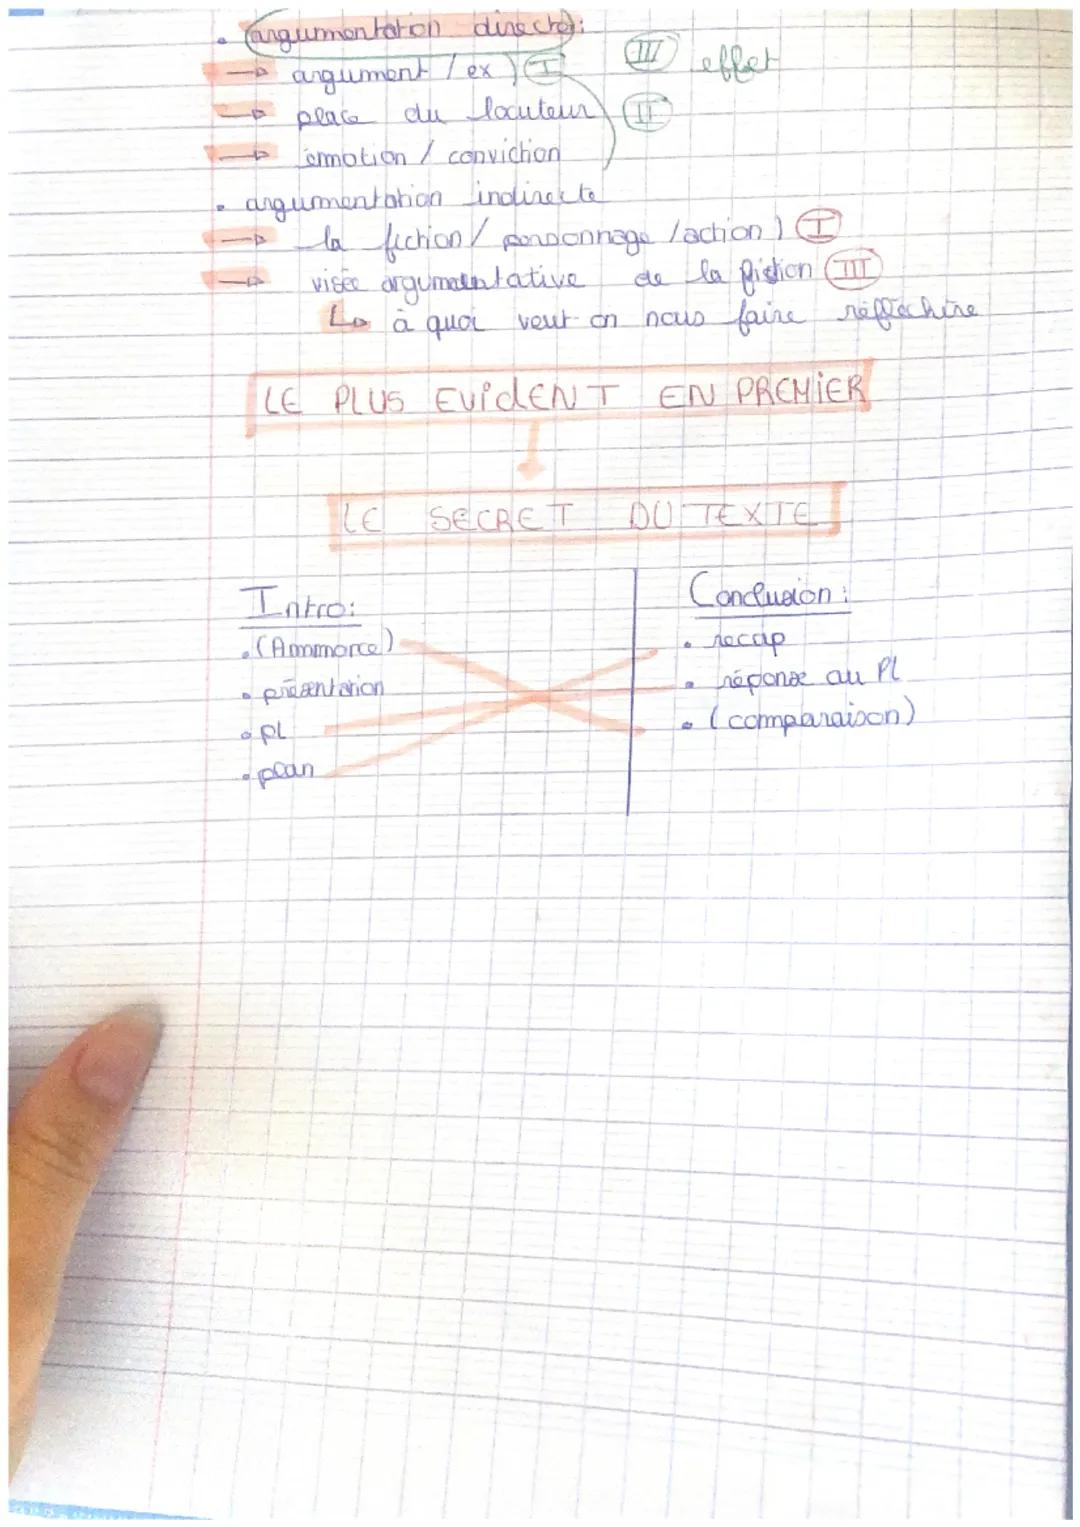 • argumentation directe :
→ argument / ex ) I III effet
→ place du locuteur II
→ émotion / conviction
• argumentation indirecte
→ la fiction / personnage / action ) I
→ visée argumentative de la fiction III
↳ à quoi veut on nous faire réfléchire
LE PLUS EVIDENT EN PREMIER
LE SECRET DU TEXTE
Intro :
• (Ammorce)
• présentation
• pL
• plan
Conclusion :
• recap
• réponse au PL
• (comparaison)